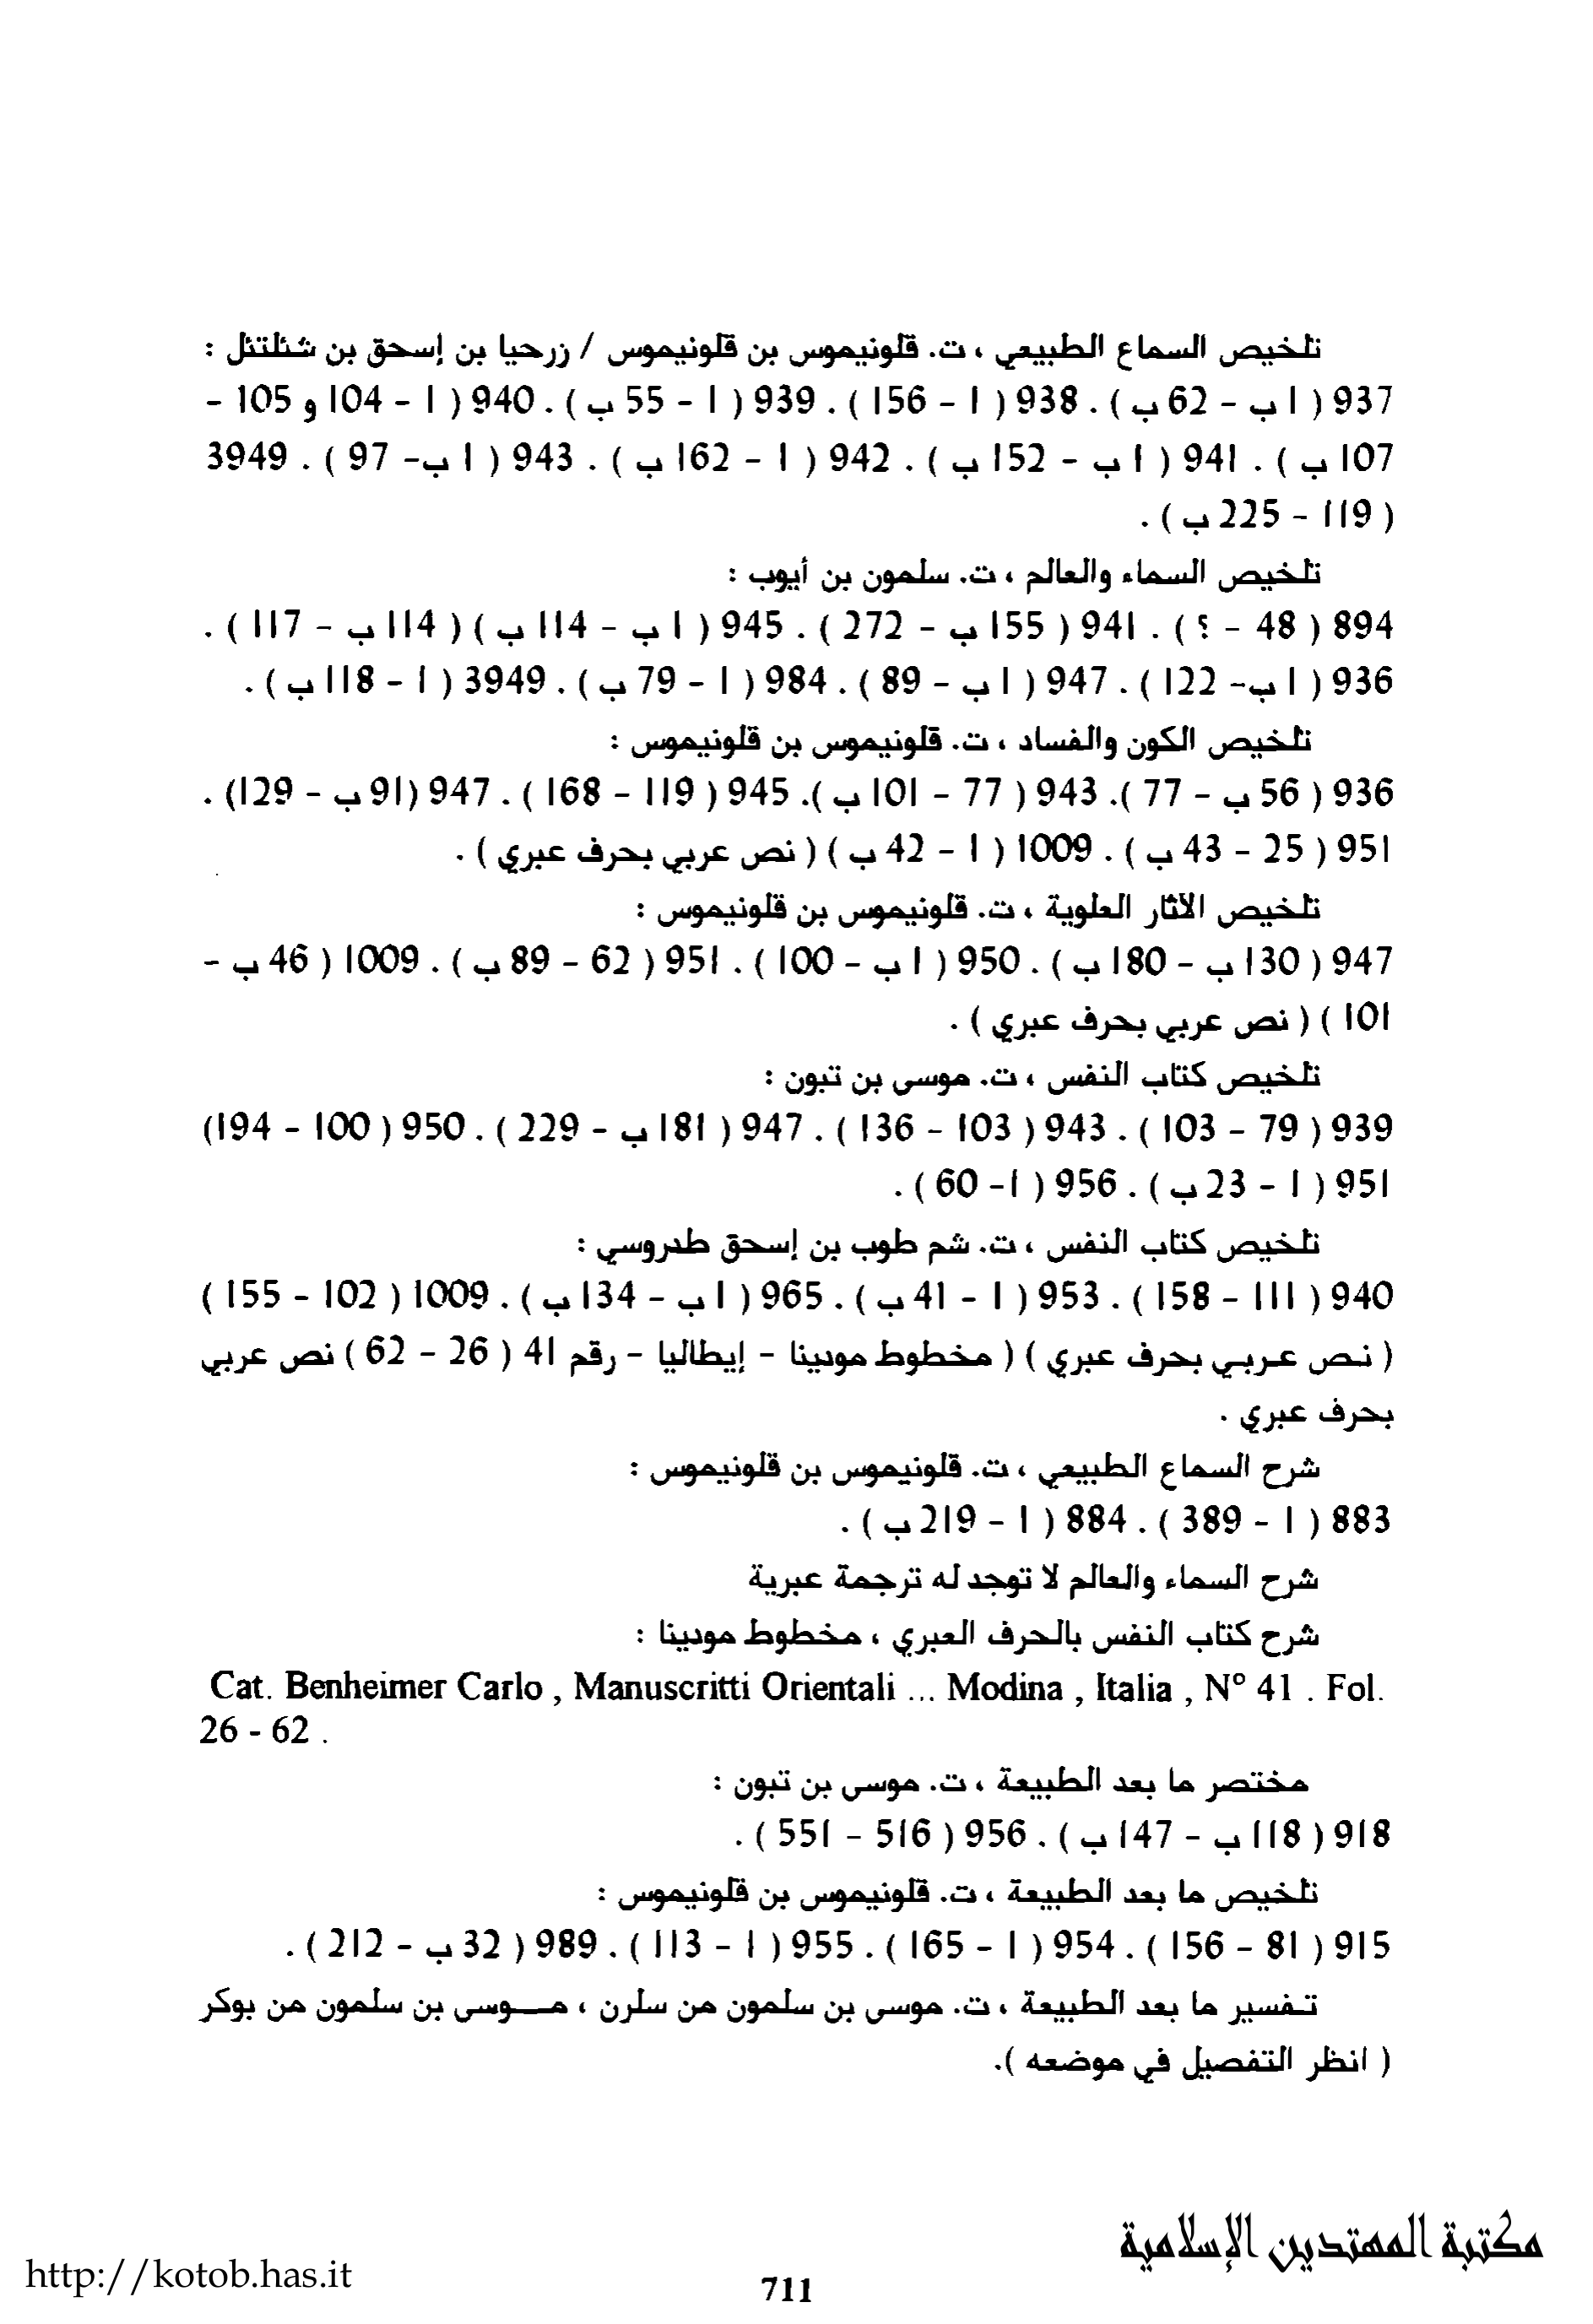 تلخيص السماع الطبيعي ، ت. قلونيموس بن قلونيموس / زرحيا بن إسحق بن شئلتئل :
937 ( 1 ب – 62 ب ) . 938 ( 1 – 156 ) . 939 ( 1 – 55 ب ) . 940 ( 1 – 104 و 105 –
107 ب ) . 941 ( 1 ب – 152 ب ) . 942 ( 1 – 162 ب ) . 943 ( 1 ب– 97 ) . 3949
( 119 – 225 ب ) .
تلخيص السماء والعالم ، ت. سلمون بن أيوب :
894 ( 48 – ؟ ) . 941 ( 155 ب – 272 ) . 945 ( 1 ب – 114 ب ) ( 114 ب – 117 ) .
936 ( 1 ب– 122 ) . 947 ( 1 ب – 89 ) . 984 ( 1 – 79 ب ) . 3949 ( 1 – 118 ب ) .
تلخيص الكون والفساد ، ت. قلونيموس بن قلونيموس :
936 ( 56 ب – 77 ). 943 ( 77 – 101 ب ). 945 ( 119 – 168 ) . 947 (91 ب – 129) .
951 ( 25 – 43 ب ) . 1009 ( 1 – 42 ب ) ( نص عربي بحرف عبري ) .
تلخيص الآثار العلوية ، ت. قلونيموس بن قلونيموس :
947 ( 130 ب – 180 ب ) . 950 ( 1 ب – 100 ) . 951 ( 62 – 89 ب ) . 1009 ( 46 ب –
101 ) ( نص عربي بحرف عبري ) .
تلخيص كتاب النفس ، ت. موسى بن تبون :
939 ( 79 – 103 ) . 943 ( 103 – 136 ) . 947 ( 181 ب – 229 ) . 950 ( 100 – 194)
951 ( 1 – 23 ب ) . 956 ( 1– 60 ) .
تلخيص كتاب النفس ، ت. شم طوب بن إسحق طدروسي :
940 ( 111 – 158 ) . 953 ( 1 – 41 ب ) . 965 ( 1 ب – 134 ب ) . 1009 ( 102 – 155 )
( نص عربي بحرف عبري ) ( مخطوط مودينا – إيطاليا – رقم 41 ( 26 – 62 ) نص عربي
بحرف عبري .
شرح السماع الطبيعي ، ت. قلونيموس بن قلونيموس :
883 ( 1 – 389 ) . 884 ( 1 – 219 ب ) .
شرح السماء والعالم لا توجد له ترجمة عبرية
شرح كتاب النفس بالحرف العبري ، مخطوط مودينا :
Cat. Benheimer Carlo , Manuscritti Orientali ... Modina , Italia , N° 41 . Fol.
26 - 62 .
مختصر ما بعد الطبيعة ، ت. موسى بن تبون :
918 ( 118 ب – 147 ب ) . 956 ( 516 – 551 ) .
تلخيص ما بعد الطبيعة ، ت. قلونيموس بن قلونيموس :
915 ( 81 – 156 ) . 954 ( 1 – 165 ) . 955 ( 1 – 113 ) . 989 ( 32 ب – 212 ) .
تفسير ما بعد الطبيعة ، ت. موسى بن سلمون من سلرن ، موسى بن سلمون من بوكر
( انظر التفصيل في موضعه ).
مكتبة المهتدين الإسلامية
http://kotob.has.it
711